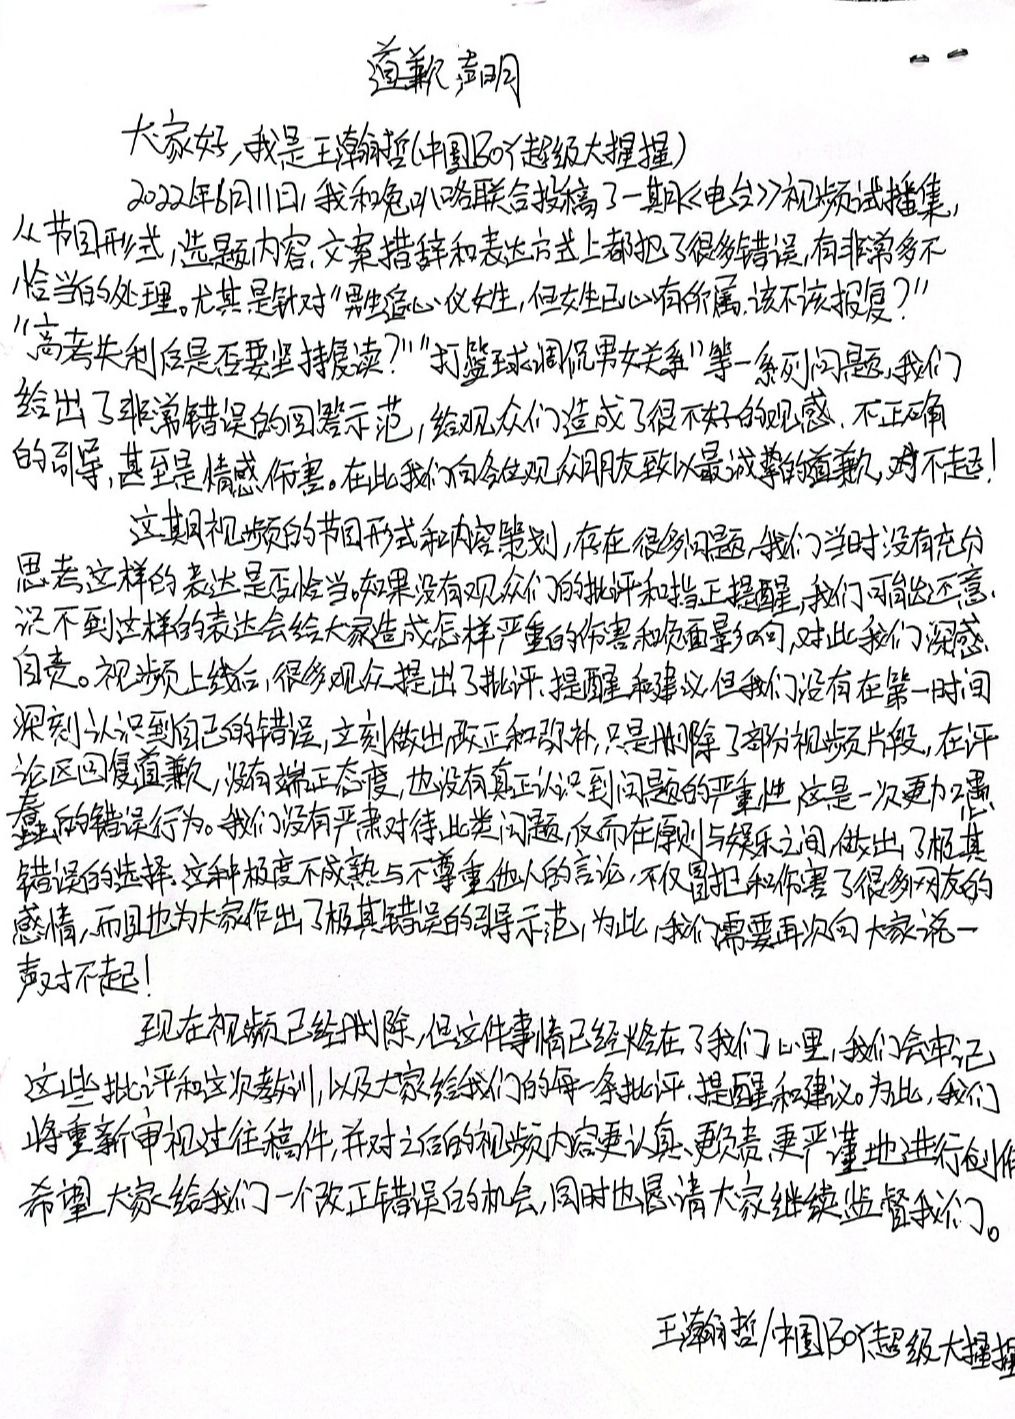 道歉声明
大家好,我是王瀚哲(中国BOY超级大猩猩)
2022年6月11日,我和兔叭咯联合投稿了一期《电台》视频试播集,
从节目形式,选题内容,文案措辞和表达方式上都犯了很多错误,有非常多不
恰当的处理。尤其是针对“男生追心仪女生,但女生已心有所属,该不该报复?”
“高考失利后是否要坚持复读?”“打篮球调侃男女关系”等一系列问题,我们
给出了非常错误的回答示范,给观众们造成了很不好的观感、不正确
的引导,甚至是情感伤害。在此我们向各位观众朋友致以最诚挚的道歉,对不起!
这期视频的节目形式和内容策划,存在很多问题,我们当时没有充分
思考这样的表达是否恰当。如果没有观众们的批评和指正提醒,我们可能还意
识不到这样的表达会给大家造成怎样严重的伤害和负面影响,对此我们深感
自责。视频上线后,很多观众提出了批评、提醒和建议,但我们没有在第一时间
深刻认识到自己的错误,立刻做出改正和弥补,只是删除了部分视频片段,在评
论区回复道歉,没有端正态度,也没有真正认识到问题的严重性,这是一次更加愚
蠢的错误行为。我们没有严肃对待此类问题,反而在原则与娱乐之间,做出了极其
错误的选择。这种极度不成熟与不尊重他人的言论,不仅冒犯和伤害了很多网友的
感情,而且也为大家作出了极其错误的引导示范,为此,我们需要再次向大家说一
声对不起!
现在视频已经删除,但这件事情已经烙在了我们心里,我们会牢记
这些批评和这次教训,以及大家给我们的每一条批评、提醒和建议。为此,我们
将重新审视过往稿件,并对之后的视频内容更认真、更负责、更严谨地进行创作
希望大家给我们一个改正错误的机会,同时也恳请大家继续监督我们。
王瀚哲/中国BOY超级大猩猩